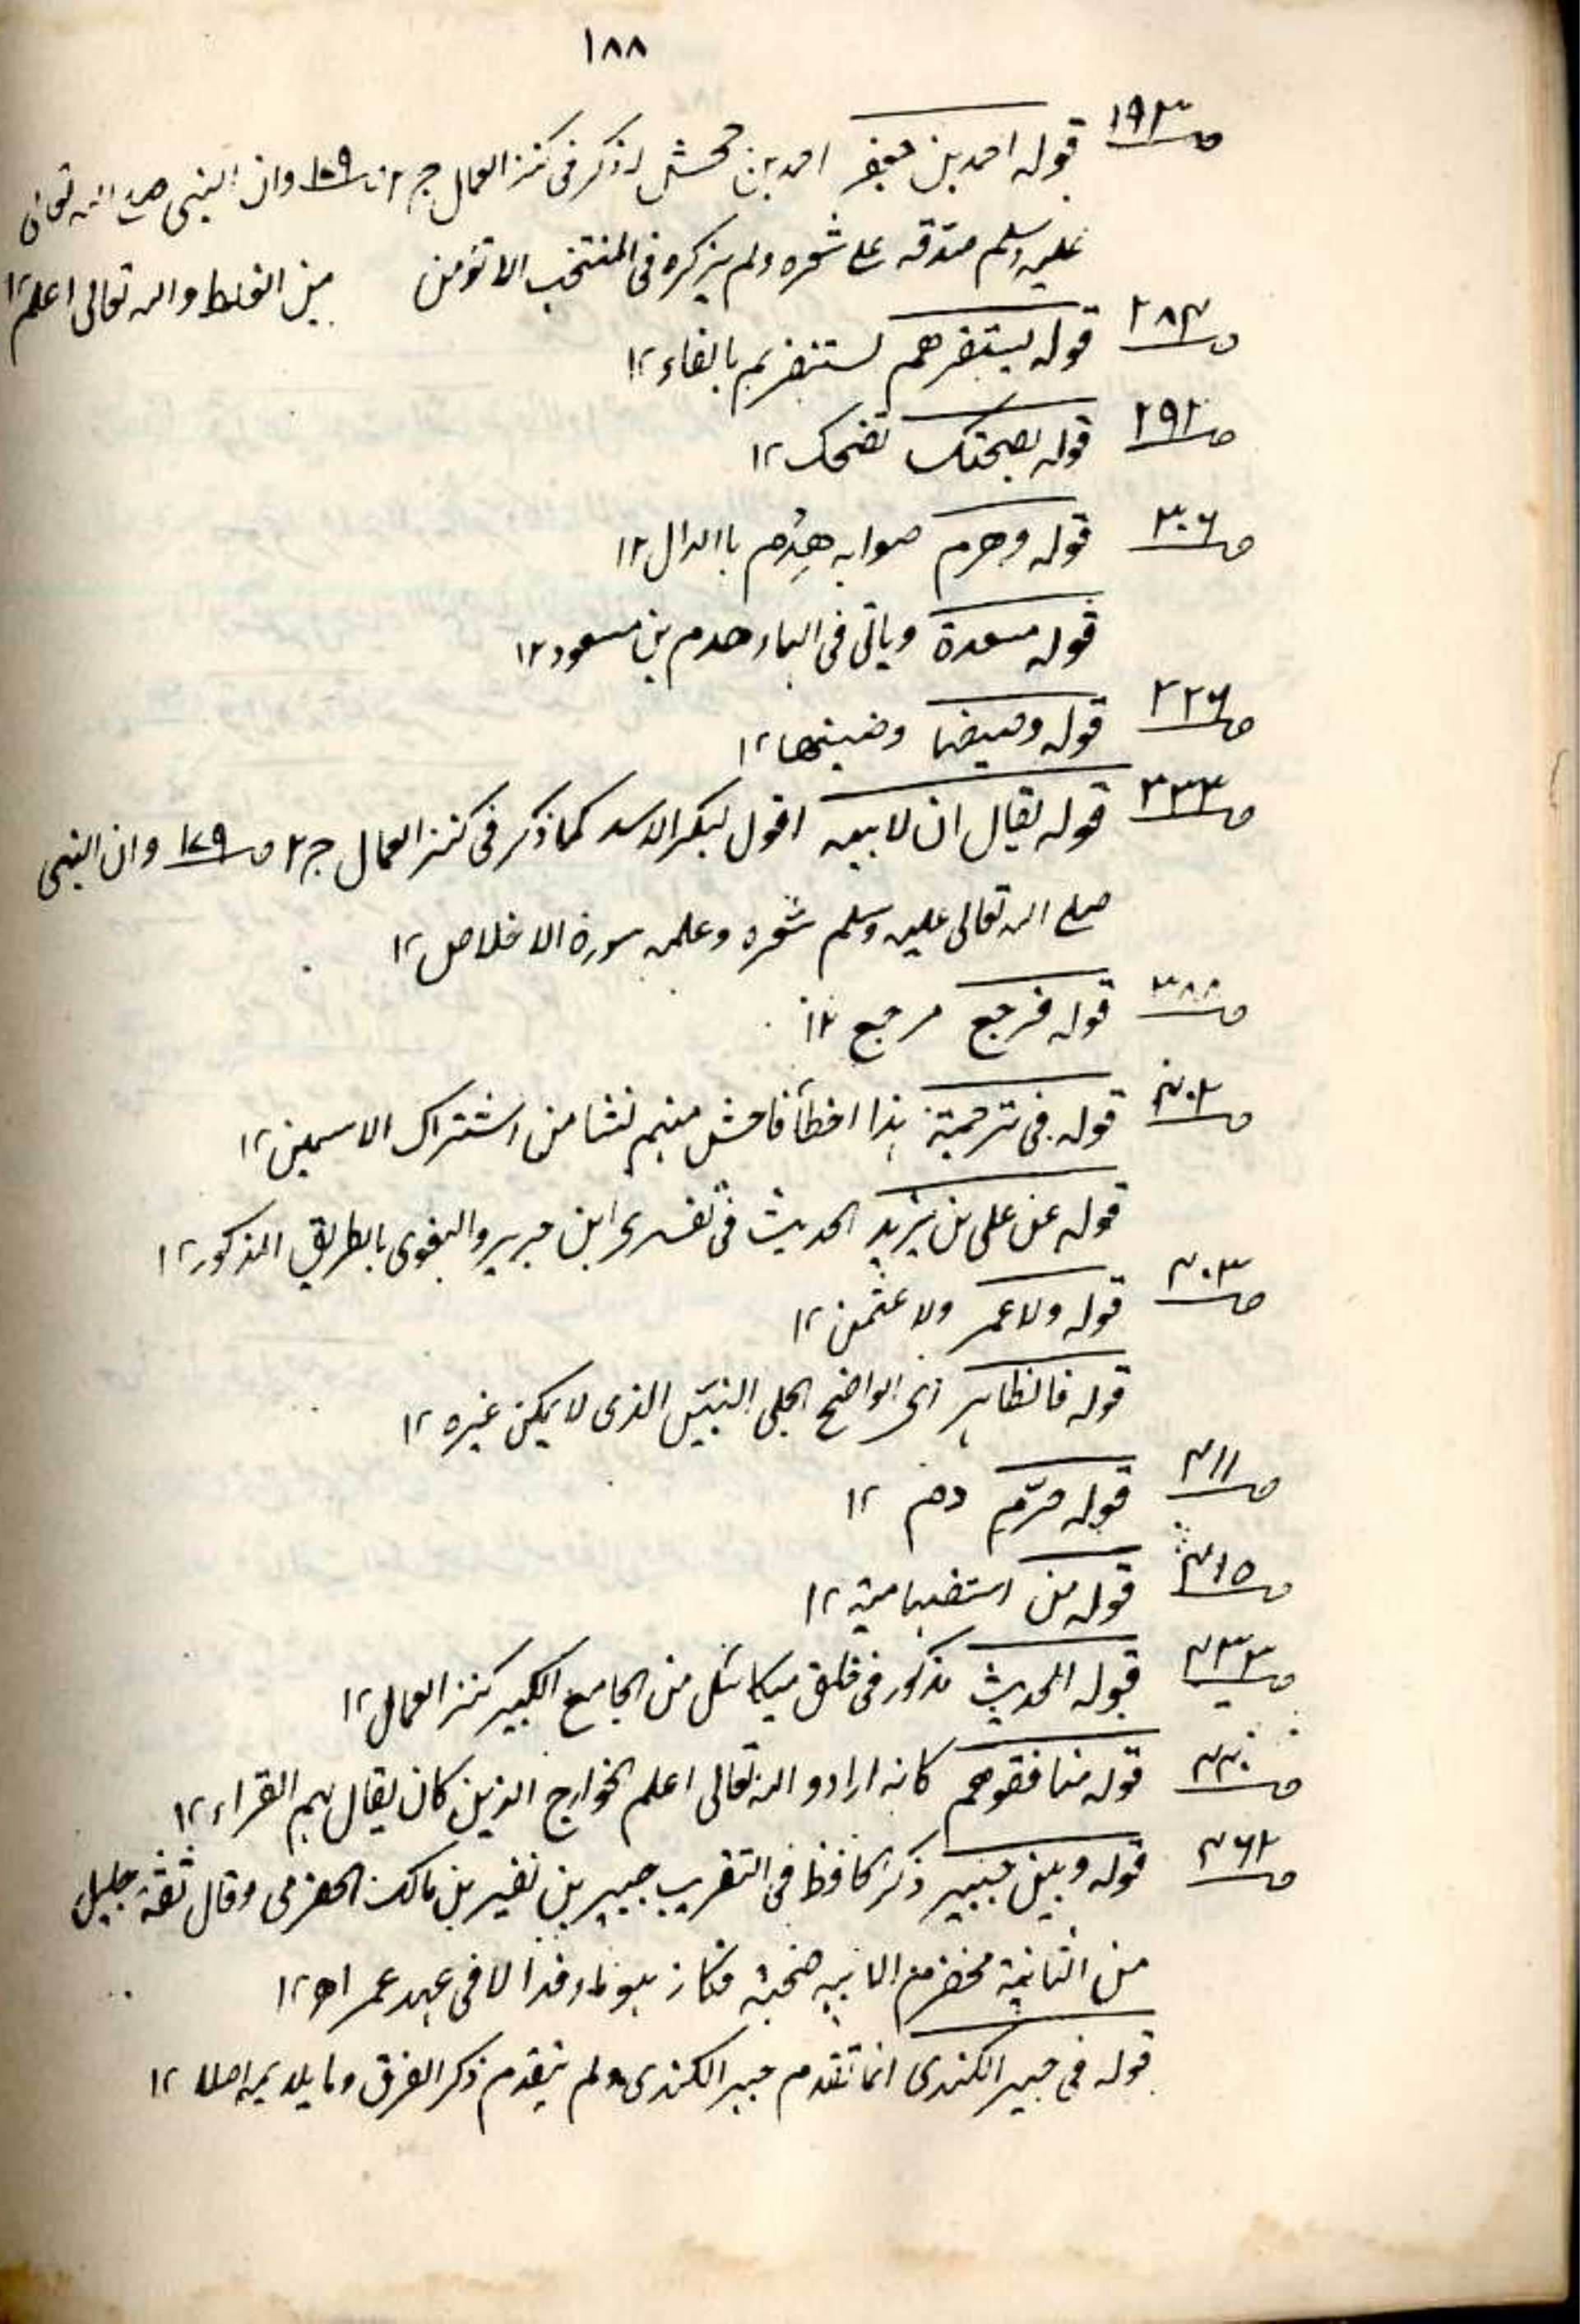 ١٨٨
ص١٩٣ قوله احمد بن جعفر احمد بن جحش ذكر فى كنز العمال ج٢ وان النبى صلے الله تعالى
عليه وسلم صدقه على شعره ولم يذكره فى المنتخب الا من الغلط والله تعالى اعلم ١٢
ص٢٨٣ قوله يستنفرهم بالفاء ١٢
ص٢٩٢ قوله تضحك ١٢
ص٣٠٦ قوله وهرم صوابه هِدْم باالدال ١٢
قوله مسعدة وياتى فى الهاء هدم بن مسعود ١٢
ص٣٢٦ قوله وضينها ١٢
ص٣٣٣ قوله يقال ان لابيه اقول لبكر الاسد كما ذكر فى كنز العمال ج٢ ص١٧٩ وان النبى
صلے الله تعالى عليه وسلم شعره وعلمه سورة الاخلاص ١٢
ص٣٨٨ قوله فرجع مرجع ١٢
ص٤٠٢ قوله فى ترجمته هذا اخطأ فاحش منهم نشا من اشتراك الاسمين ١٢
قوله عن على بن يزيد الحديث فى تفسيرى ابن جرير والبغوى بالطريق المذكور ١٢
ص٤٠٣ قوله ولا عمر ولا عثمن ١٢
قوله فالظاهر اى الواضح الجلى البيّن الذى لا يمكن غيره ١٢
ص٤١١ قوله
ص٤١٥ قوله من استفهامية ١٢
ص٤٣٣ قوله الحديث مذكور فى خلق ميكائل من الجامع الكبير كنز العمال ١٢
ص٤٤٠ قوله منافقوهم كانه اراد والله تعالى اعلم الخوارج الذين كان يقال لهم القراء ١٢
ص٤٦٢ قوله وبين جبير ذكر الحافظ فى التقريب جبير بن نفير بن مالك الحضرمى وقال ثقة جليل
من الثانية مخضرم لابيه صحبة فكان هو ما وفد الا فى عهد عمر اھ ١٢
قوله فى جبير الكندى انما تقدم جبير الكندى ولم يتقدم ذكر الفرق وما يلايمه اصلا ١٢